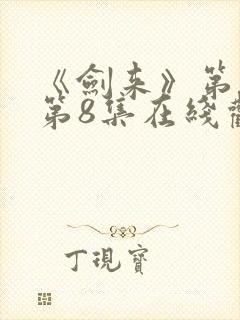 《劍来》第
第8集在綫
丁現寳